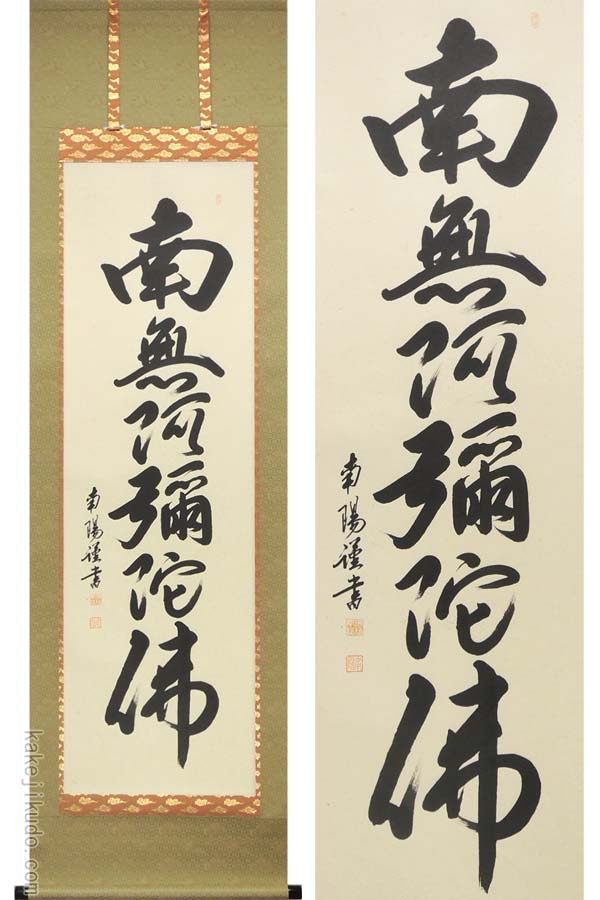 南無阿彌陀佛
南陽謹書
南無阿彌陀佛
南陽謹書
kakejikudo.com